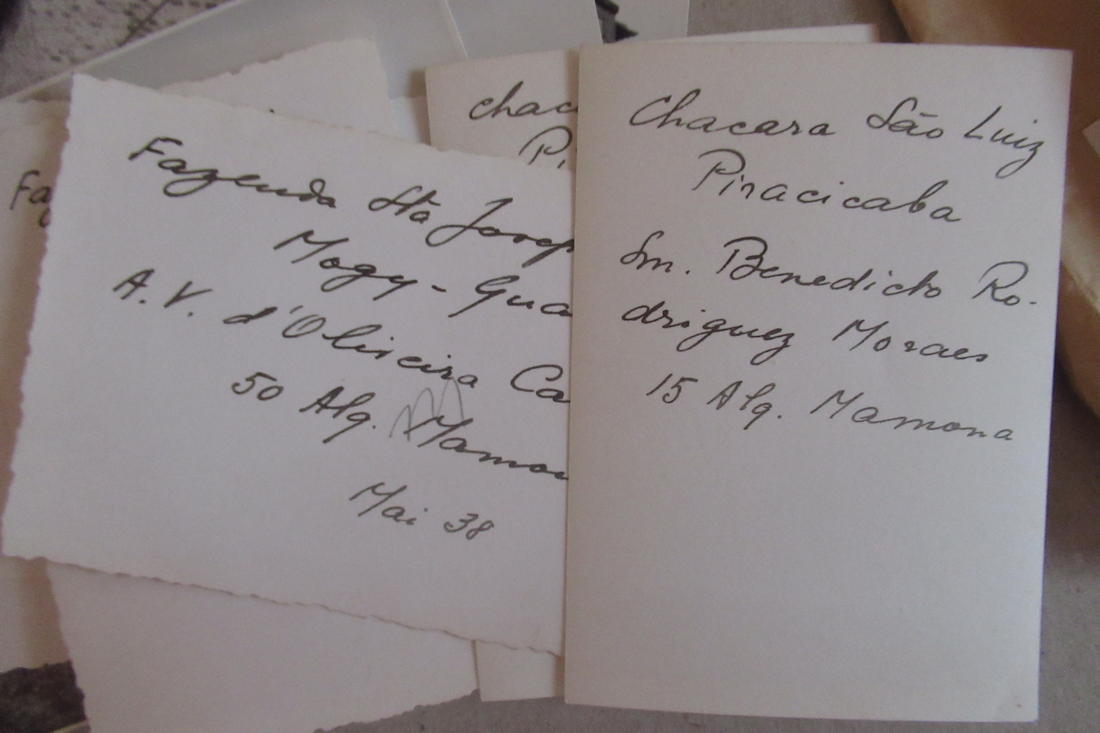 Fa
Fazenda Sta Josep
Mogy-Gua
A.V. d'Oliveira Ca
50 Alq. Mamon
Mai 38
chac
Pi
Chacara São Luiz
Piracicaba
Sm. Benedicto Ro-
driguez Moraes
15 Alq. Mamona